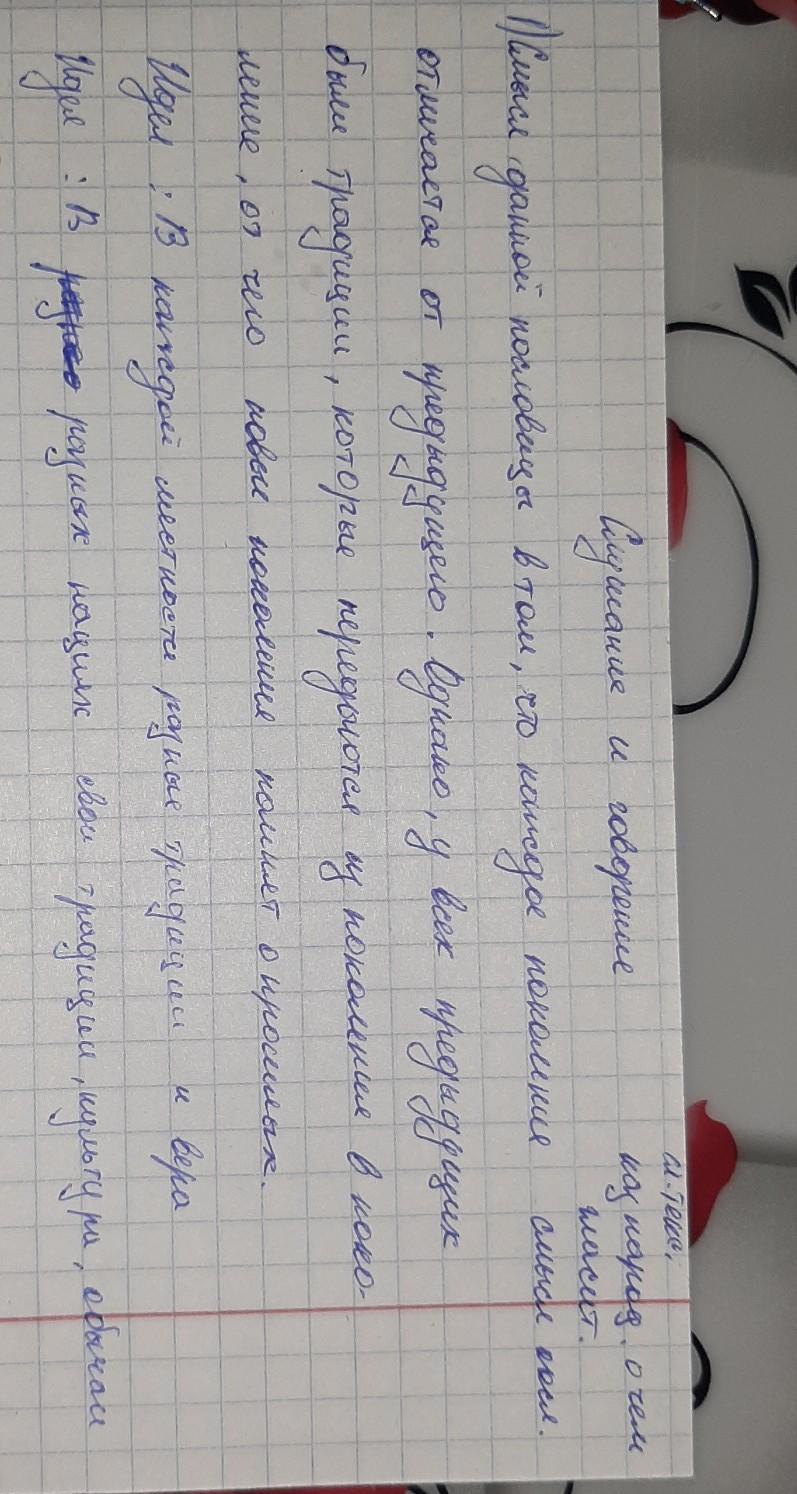 Слушание и говорение
м-текс,
каз народ. о чем
гласит.
1) Смысл данной пословицы в том, что каждое поколение смысл посл.
отличается от предыдущего. Однако, у всех предыдущих
были традиции, которые передаются из поколения в поко-
ление, от чего новые поколения помнят о прошлых.
Идея : В каждой местности разные традиции и вера
Идея : В разных нациях свои традиции, культура, обычаи